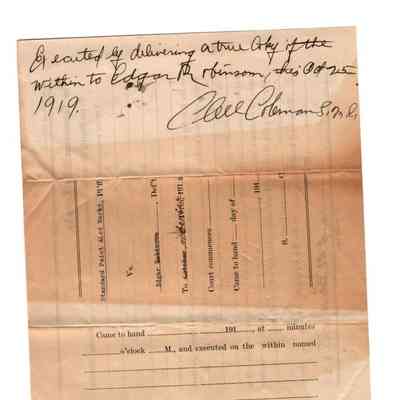 Executed by delivering a true Coby of the
within to Edgar Robinson, this Oct 25
1919.
Coleman
Standard Paint &
Plt'ff
Vs.
Edgar Robinson , Def't
To
191
Court commences
Came to hand day of
191
Came to hand 191 , at minutes
o'clock M., and executed on the within named